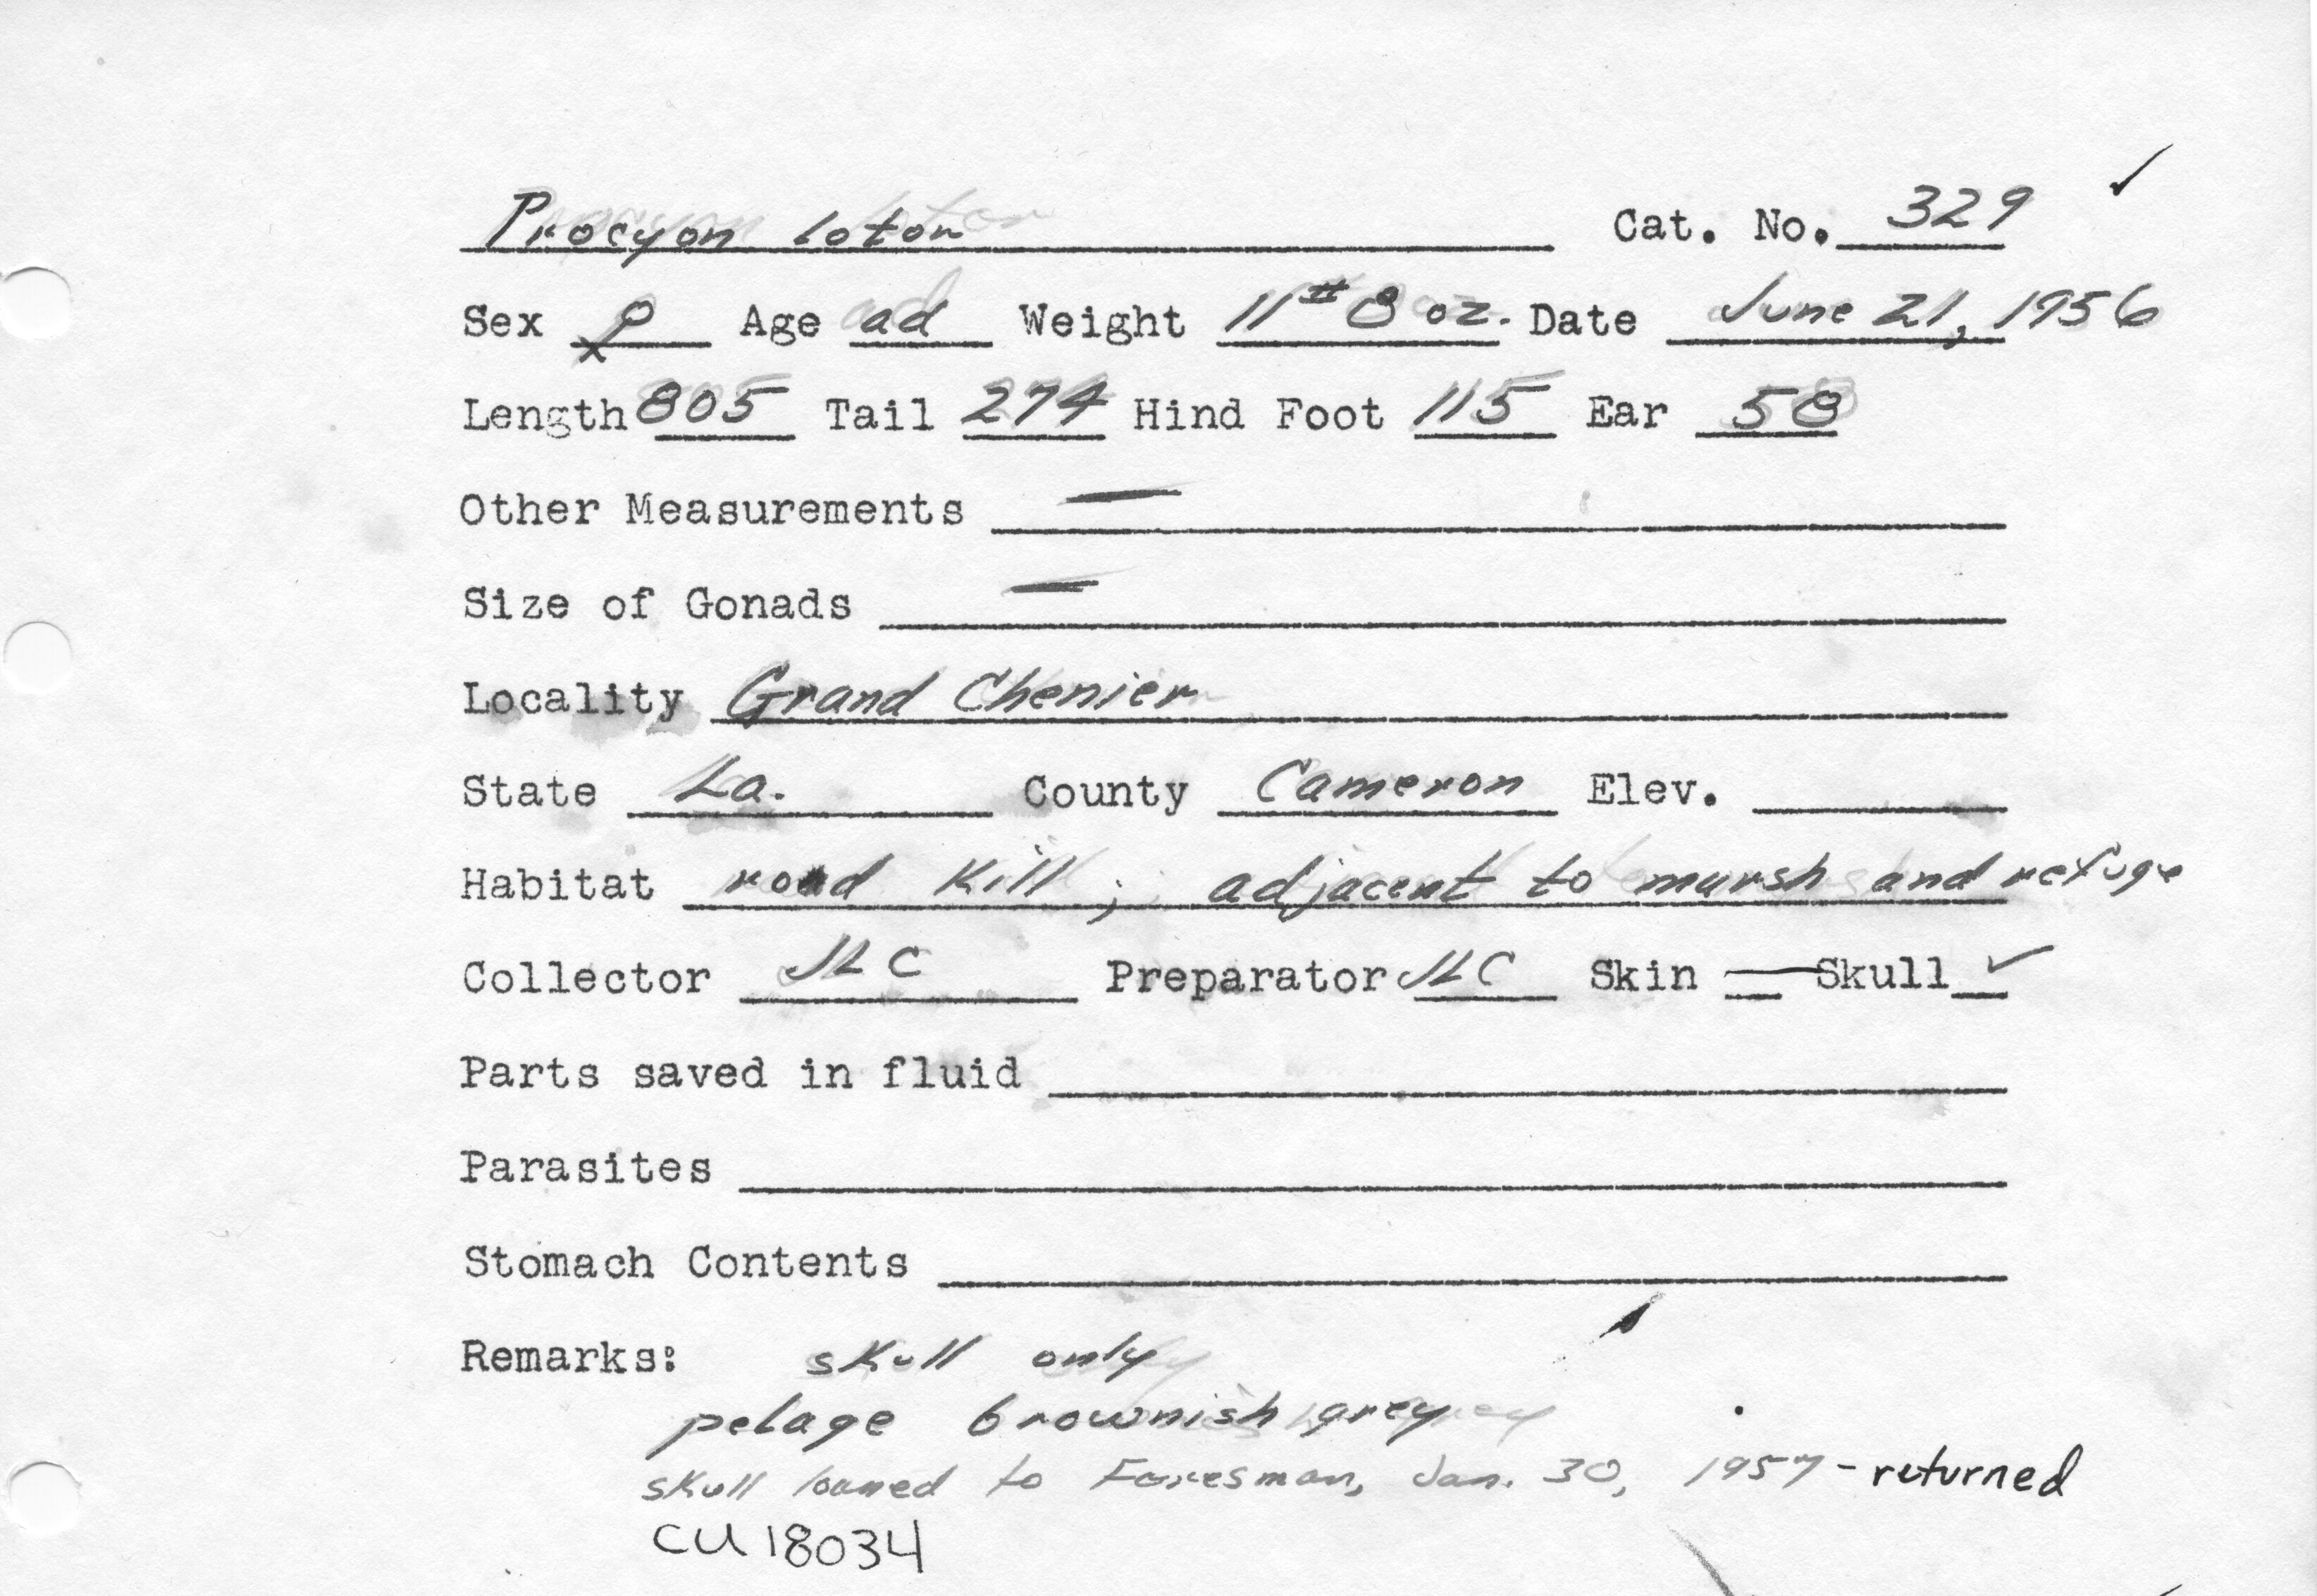 Procyon lotor Cat. No. 329 ✓
Sex ♀ Age ad Weight 11# 8 oz. Date June 21, 1956
Length 805 Tail 274 Hind Foot 115 Ear 58
Other Measurements —
Size of Gonads —
Locality Grand Chenier
State La. County Cameron Elev.
Habitat road kill; adjacent to marsh and refuge
Collector JLC Preparator JLC Skin — Skull ✓
Parts saved in fluid
Parasites
Stomach Contents
Remarks: skull only
pelage brownish grey
skull loaned to Foresman, Jan. 30, 1957 - returned
CU 18034